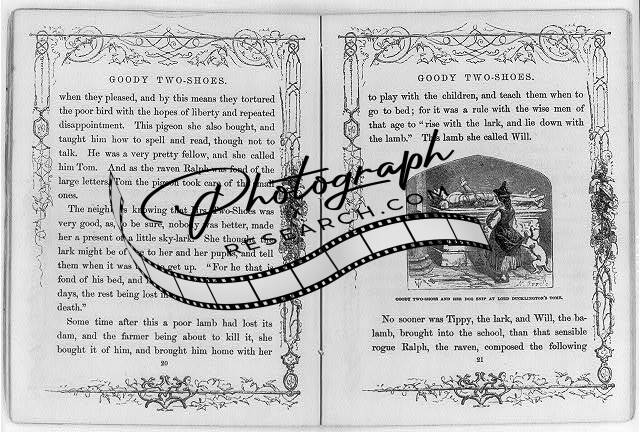 GOODY TWO-SHOES.
when they pleased, and by this means they tortured
the poor bird with the hopes of liberty and repeated
disappointment. This pigeon she also bought, and
taught him how to spell and read, though not to
talk. He was a very pretty fellow, and she called
him Tom. And as the raven Ralph was fond of the
large letters, Tom the pigeon took care of the small
ones.
The neighbors knowing that Mrs. Two-Shoes was
very good, as, to be sure, nobody was better, made
her a present of a little sky-lark. She thought the
lark might be of use to her and her pupils, and tell
them when it was time to get up. "For he that is
fond of his bed, and
days, the rest being lost in
death."
Some time after this a poor lamb had lost its
dam, and the farmer being about to kill it, she
bought it of him, and brought him home with her
20
GOODY TWO-SHOES.
to play with the children, and teach them when to
go to bed; for it was a rule with the wise men of
that age to "rise with the lark, and lie down with
the lamb." This lamb she called Will.
GOODY TWO-SHOES AND HER DOG SNIP AT LORD DUCKLINGTON'S TOMB.
No sooner was Tippy, the lark, and Will, the ba-
lamb, brought into the school, than that sensible
rogue Ralph, the raven, composed the following
21
Photograph
RESEARCH.COM